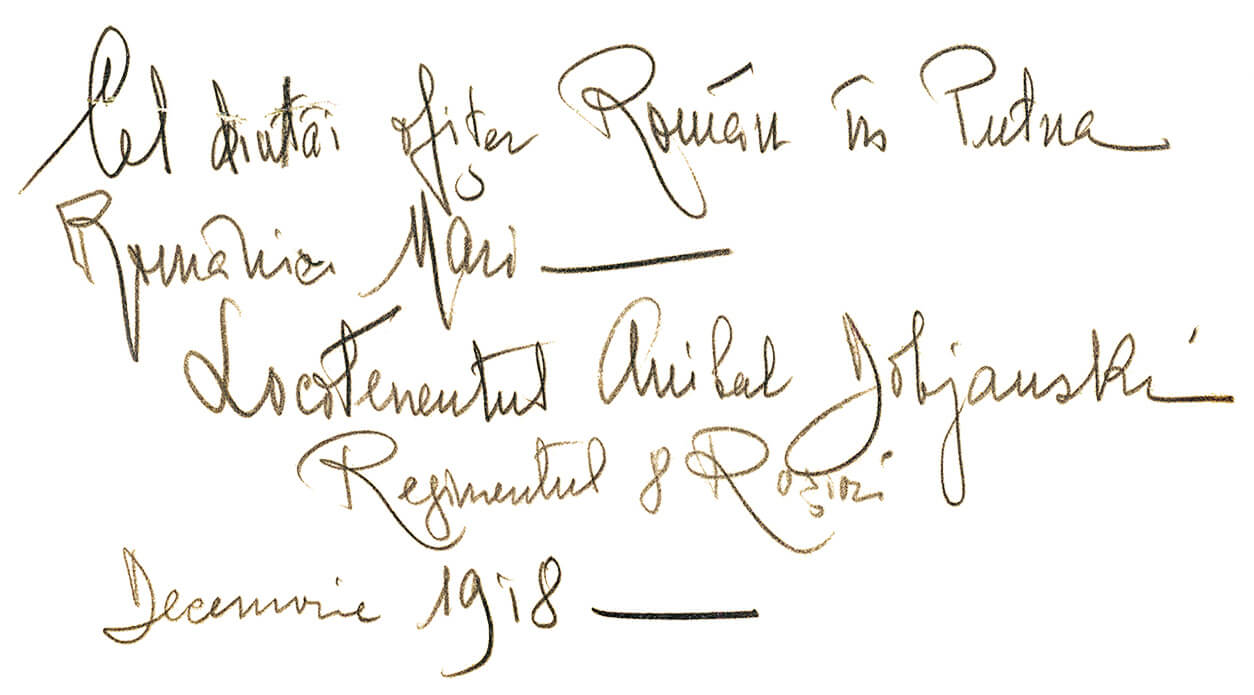 Cel dintâi ofițer Român în Putna
României Mari —
Locotenentul Anibal Dobjanski
Regimentul 8 Roșiori
Decemvrie 1918 —